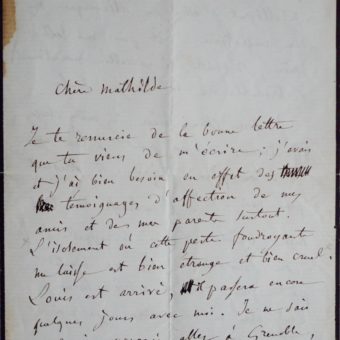 chère Mathilde
Je te remercie de la bonne lettre
que tu viens de m'écrire ; j'avais
et j'ai bien besoin en effet des
témoignages d'affection de mes
amis et de mes parents surtout.
L'isolement où cette perte foudroyant
me laisse est bien étrange et bien cruel.
Louis est arrivé, il passera encore
quelques jours avec moi. Je ne sais
aller à Grenoble,